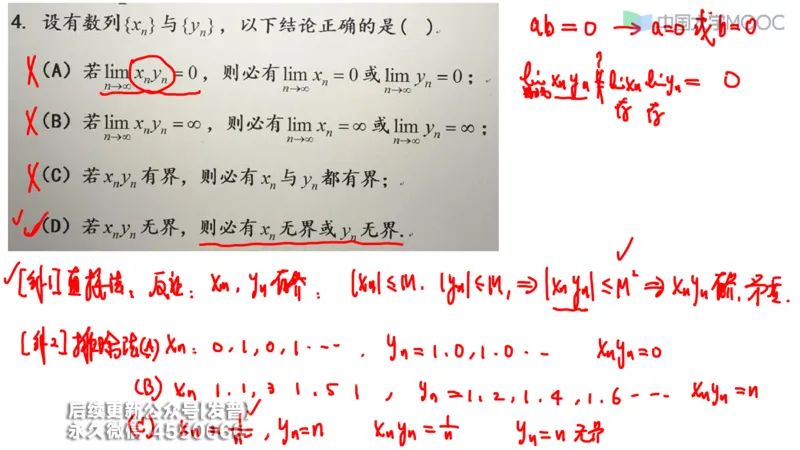 4. 设有数列{xₙ}与{yₙ}，以下结论正确的是( ).
(A) 若 lim_{n→∞} xₙyₙ = 0，则必有 lim_{n→∞} xₙ = 0 或 lim_{n→∞} yₙ = 0；
(B) 若 lim_{n→∞} xₙyₙ = ∞，则必有 lim_{n→∞} xₙ = ∞ 或 lim_{n→∞} yₙ = ∞；
(C) 若 xₙyₙ 有界，则必有 xₙ 与 yₙ 都有界；
(D) 若 xₙyₙ 无界，则必有 xₙ 无界或 yₙ 无界.
中国大学MOOC
ab=0 → a=0 或 b=0
lim xₙyₙ ≟ lim xₙ lim yₙ = 0
存 存
[解1]直接法、反证: xₙ, yₙ有界: |xₙ|≤M. |yₙ|≤M, ⇒ |xₙyₙ|≤M² ⇒ xₙyₙ有界, 矛盾.
[解2]排除法(A) xₙ: 0,1,0,1..... , yₙ=1.0,1.0.. xₙyₙ=0
(B) xₙ 1.1,3 1.5 1 , yₙ=1.2,1.4,1.6--- xₙyₙ=n
(C) xₙ= , yₙ=n xₙyₙ=1/n yₙ=n 无界
后续更新公众号[发普]
永久微信